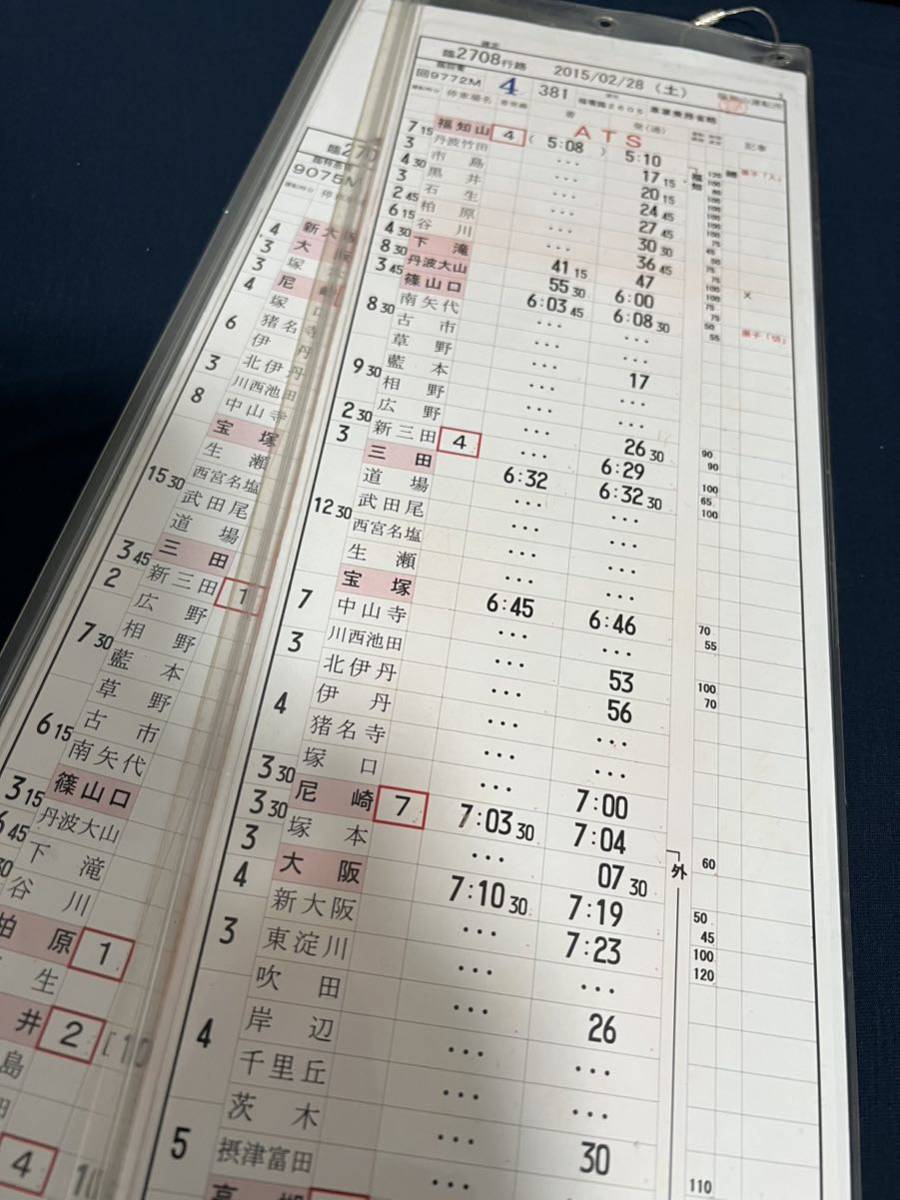 臨2708行路 2015/02/28 (土)
回9772M 4 381
停車場名 着 発(通) 記事
ATS
7 15 福知山 4 ( 5:08 ) 5:10
3 丹波竹田 ... 17 15
4 30 市島 ... 20 15
3 黒井 ... 24 45
2 45 石生 ... 27 45
6 15 柏原 ... 30 30
4 30 谷川 ... 36 45
8 30 下滝 41 15 47
3 45 丹波大山 55 30 6:00
篠山口 6:03 45 6:08 30
8 30 南矢代 ... ...
古市 ... ...
草野 ... 17
9 30 藍本 ... ...
相野 ... ...
2 30 広野 ... 26 30
3 新三田 4 ... 6:29
三田 6:32 6:32 30
道場 ... ...
12 30 武田尾 ... ...
西宮名塩 ... ...
生瀬 ... ...
宝塚 6:45 6:46
7 中山寺 ... ...
3 川西池田 ... 53
北伊丹 ... 56
4 伊丹 ... ...
猪名寺 ... ...
3 30 塚口 ... 7:00
3 30 尼崎 7 7:03 30 7:04
3 塚本 ... 07 30
4 大阪 7:10 30 7:19
新大阪 ... 7:23
3 東淀川 ... ...
吹田 ... 26
4 岸辺 ... ...
千里丘 ... ...
茨木 ... 30
5 摂津富田 ...
外
90
90
100
65
100
70
55
100
70
60
50
45
100
120
110
臨270
9075M
4 新大
3 大
3 塚
4 尼
塚口
6 猪名寺
伊丹
3 北伊丹
川西池田
8 中山寺
宝塚
生瀬
西宮名塩
15 30 武田尾
道場
三田
3 45 新三田 1
2 広野
相野
7 30 藍本
草野
古市
6 15 南矢代
篠山口
3 15 丹波大山
45 下滝
30 谷川
柏原 1
生
井 2
島
4